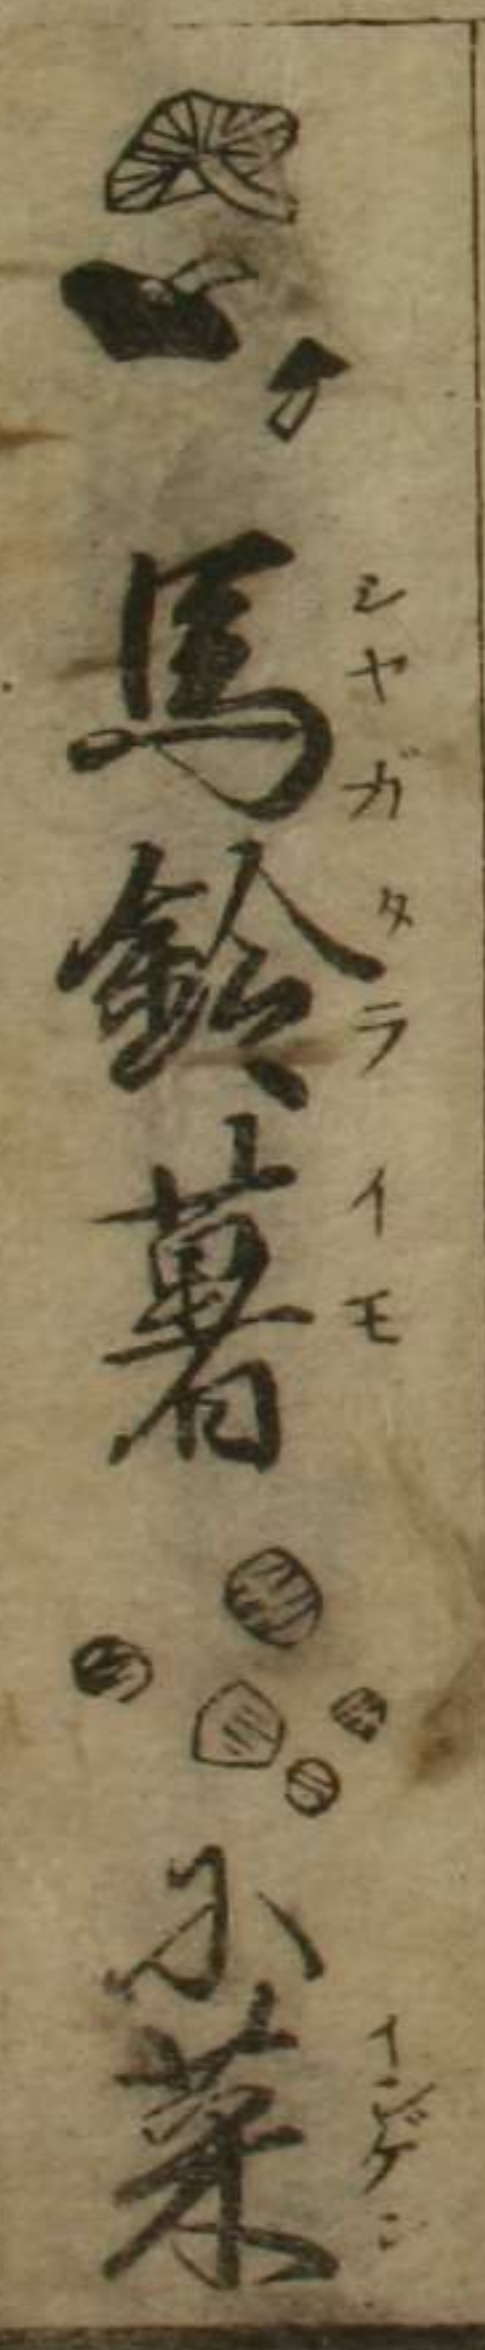 馬鈴薯
シヤガタライモ
小菜
インゲン